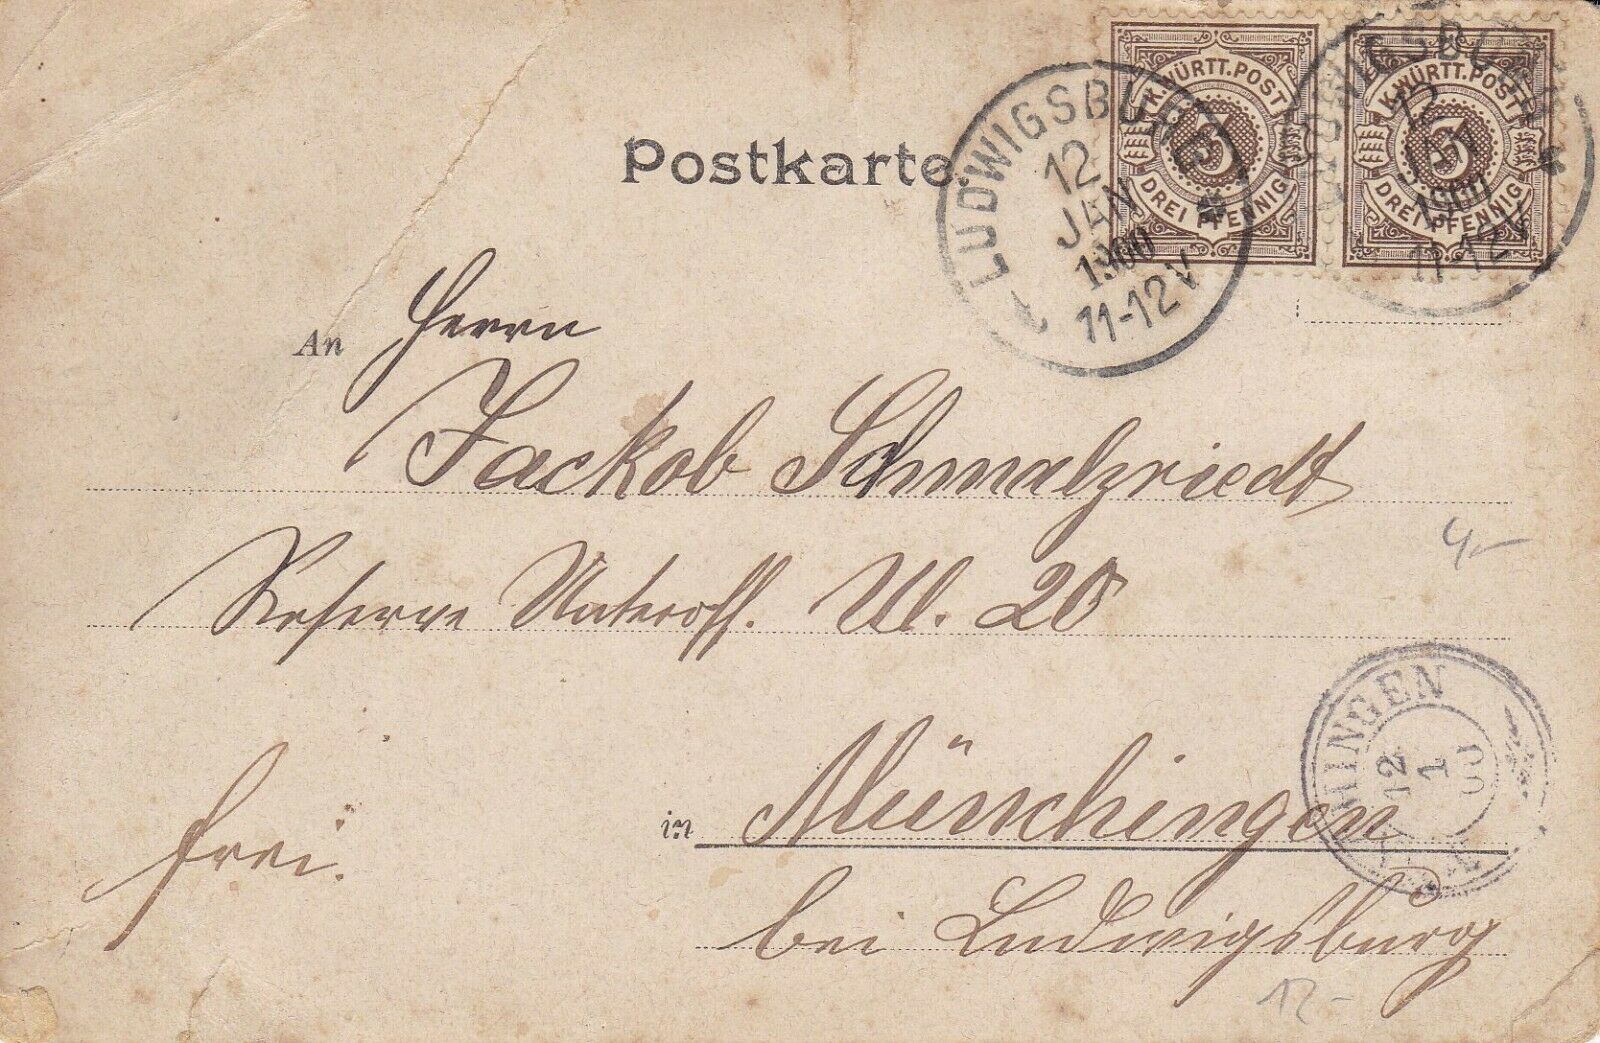 Postkarte.
K. WÜRTT. POST
3
DREI PFENNIG
K. WÜRTT. POST
3
DREI PFENNIG
LUDWIGSBURG
12
JAN
1900
11-12V
LUDWIGSBURG
12
JAN
1900
11-12V
An Herrn
Jackob Schmalzriedt
Reserve Unteroff. Ul. 20
MÜNCHINGEN
12
1
00
frei.
in Münchingen
bei Ludwigsburg
4-
12-